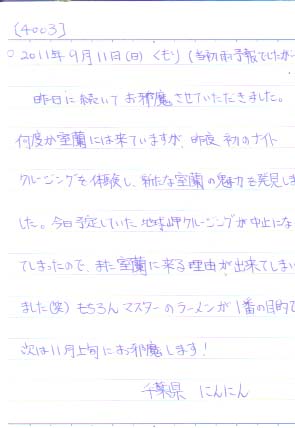 [4003]
○ 2011年9月11日(日) くもり (当初雨予報でしたが
昨日に続いてお邪魔させていただきました。
何度か室蘭には来ていますが、昨夜初のナイト
クルージングを体験し、新たな室蘭の魅力を発見しま
した。今日予定していた地球岬クルージングが中止にな
てしまったので、また室蘭に来る理由が出来てしまい
ました(笑)もちろんマスターのラーメンが1番の目的で
次は11月上旬にお邪魔します!
千葉県 にんにん